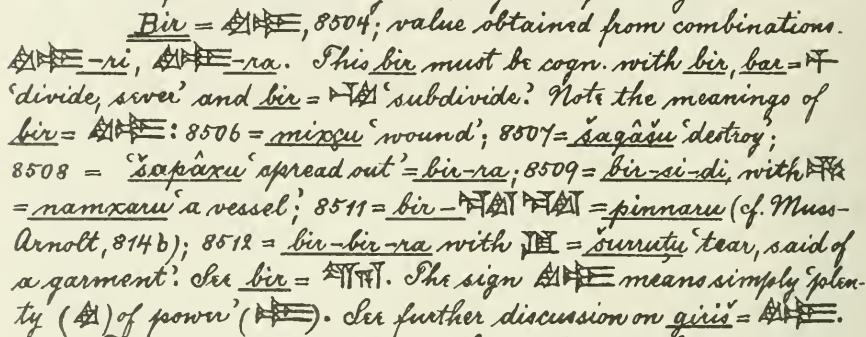 Bir = , 8504; value obtained from combinations.
-ri, -ra. This bir must be cogn. with bir, bar =
‘divide, sever’ and bir = ‘subdivide.’ Note the meanings of
bir = : 8506 = mixçu ‘wound’; 8507 = šagâšu ‘destroy;
8508 = ‘šapâxu ‘spread out’ = bir-ra; 8509 = bir-si-di, with
= namxaru ‘a vessel;’ 8511 = bir- = pinnaru (cf. Muss-
Arnolt, 814b); 8512 = bir-bir-ra with = šurruṭu ‘tear, said of
a garment.’ See bir = . The sign means simply ‘plen-
ty ( ) of power’ ( ). See further discussion on giriš = .